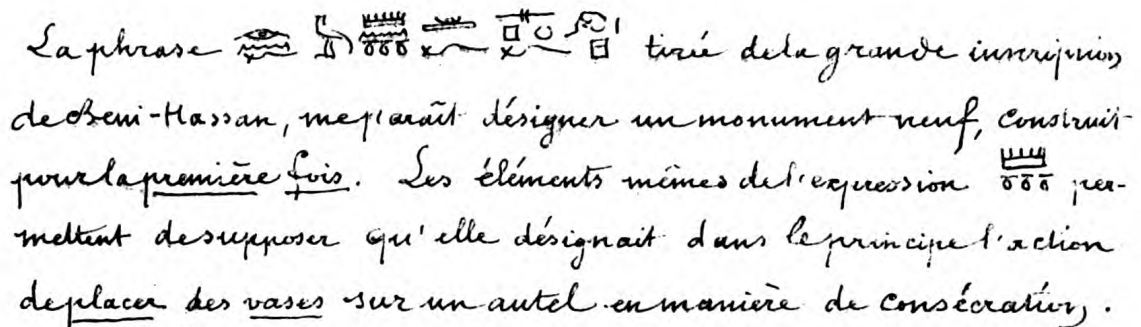 La phrase tirée de la grande inscription
de Beni-Hassan, me paraît désigner un monument neuf, construit
pour la première fois. Les éléments mêmes de l'expression per-
mettent de supposer qu'elle désignait dans le principe l'action
de placer des vases sur un autel en manière de consécration.